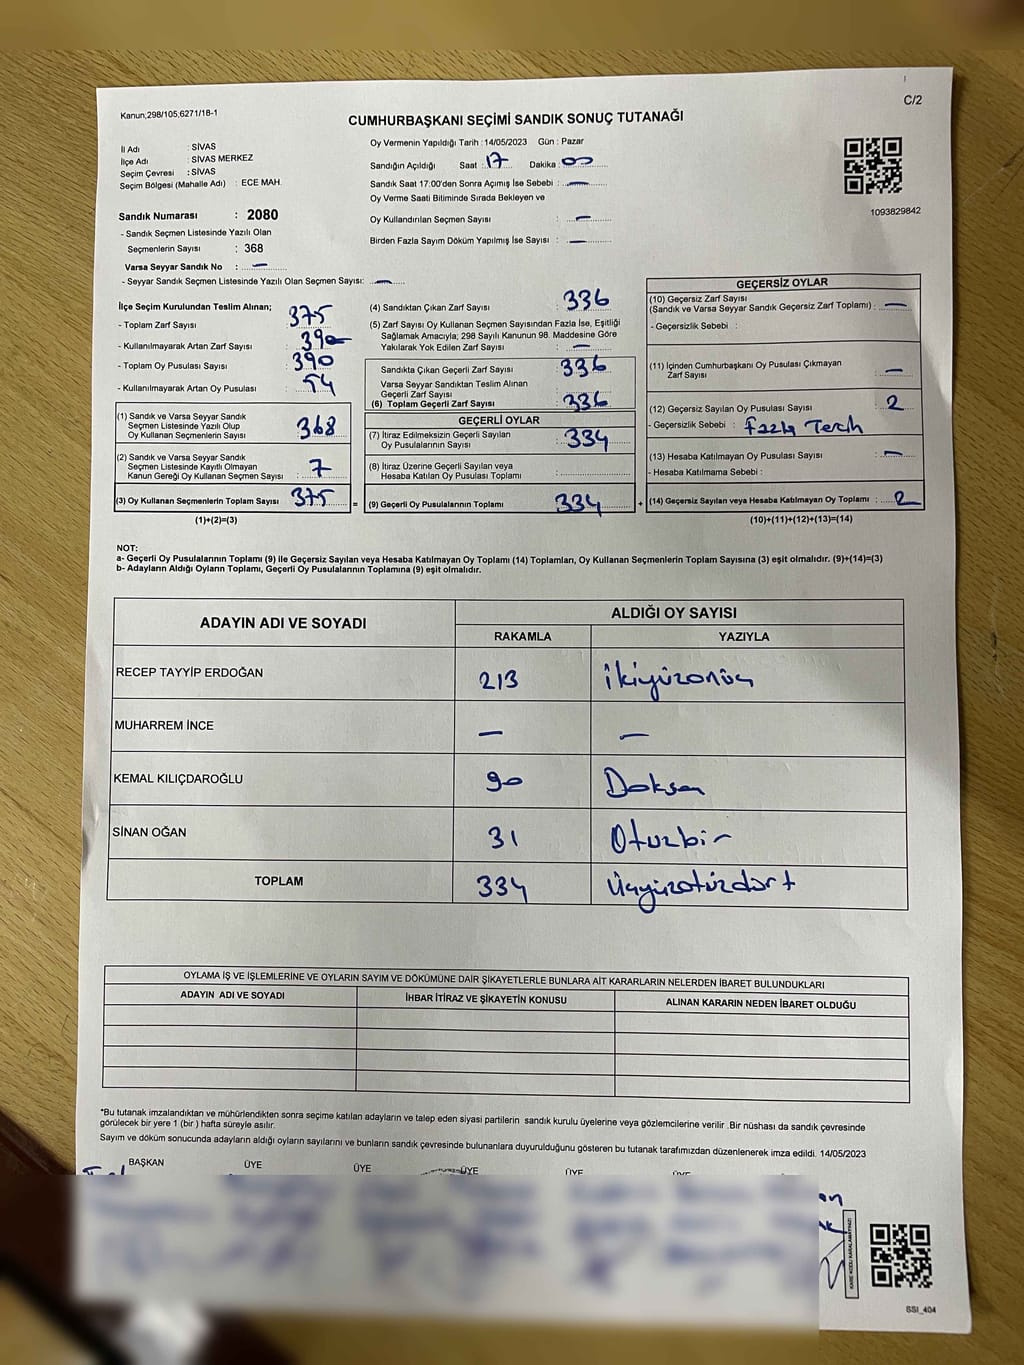 C/2
Kanun;298/105;6271/18-1
CUMHURBAŞKANI SEÇİMİ SANDIK SONUÇ TUTANAĞI
İl Adı : SİVAS
İlçe Adı : SİVAS MERKEZ
Seçim Çevresi : SİVAS
Seçim Bölgesi (Mahalle Adı) : ECE MAH.
Sandık Numarası : 2080
- Sandık Seçmen Listesinde Yazılı Olan
Seçmenlerin Sayısı : 368
Varsa Seyyar Sandık No : —
- Seyyar Sandık Seçmen Listesinde Yazılı Olan Seçmen Sayısı: —
Oy Vermenin Yapıldığı Tarih :14/05/2023 Gün : Pazar
Sandığın Açıldığı Saat : 17 Dakika : 00
Sandık Saat 17:00'den Sonra Açımış İse Sebebi : —
Oy Verme Saati Bitiminde Sırada Bekleyen ve
Oy Kullandırılan Seçmen Sayısı : —
Birden Fazla Sayım Döküm Yapılmış İse Sayısı : —
1093829842
İlçe Seçim Kurulundan Teslim Alınan;
- Toplam Zarf Sayısı : 375
- Kullanılmayarak Artan Zarf Sayısı : 390
- Toplam Oy Pusulası Sayısı : 390
- Kullanılmayarak Artan Oy Pusulası : 54
(1) Sandık ve Varsa Seyyar Sandık
Seçmen Listesinde Yazılı Olup
Oy Kullanan Seçmenlerin Sayısı : 368
(2) Sandık ve Varsa Seyyar Sandık
Seçmen Listesinde Kayıtlı Olmayan
Kanun Gereği Oy Kullanan Seçmen Sayısı : 7
(3) Oy Kullanan Seçmenlerin Toplam Sayısı : 375 =
(1)+(2)=(3)
(4) Sandıktan Çıkan Zarf Sayısı : 336
(5) Zarf Sayısı Oy Kullanan Seçmen Sayısından Fazla İse, Eşitliği
Sağlamak Amacıyla; 298 Sayılı Kanunun 98. Maddesine Göre
Yakılarak Yok Edilen Zarf Sayısı : —
Sandıkta Çıkan Geçerli Zarf Sayısı : 336
Varsa Seyyar Sandıktan Teslim Alınan
Geçerli Zarf Sayısı
(6) Toplam Geçerli Zarf Sayısı : 336
GEÇERLİ OYLAR
(7) İtiraz Edilmeksizin Geçerli Sayılan
Oy Pusulalarının Sayısı : 334
(8) İtiraz Üzerine Geçerli Sayılan veya
Hesaba Katılan Oy Pusulası Toplamı :
(9) Geçerli Oy Pusulalarının Toplamı : 334 +
GEÇERSİZ OYLAR
(10) Geçersiz Zarf Sayısı
(Sandık ve Varsa Seyyar Sandık Geçersiz Zarf Toplamı) : —
- Geçersizlik Sebebi :
(11) İçinden Cumhurbaşkanı Oy Pusulası Çıkmayan
Zarf Sayısı : —
(12) Geçersiz Sayılan Oy Pusulası Sayısı : 2
- Geçersizlik Sebebi : Fazla Tercih
(13) Hesaba Katılmayan Oy Pusulası Sayısı : —
- Hesaba Katılmama Sebebi :
(14) Geçersiz Sayılan veya Hesaba Katılmayan Oy Toplamı : 2
(10)+(11)+(12)+(13)=(14)
NOT:
a- Geçerli Oy Pusulalarının Toplamı (9) ile Geçersiz Sayılan veya Hesaba Katılmayan Oy Toplamı (14) Toplamları, Oy Kullanan Seçmenlerin Toplam Sayısına (3) eşit olmalıdır. (9)+(14)=(3)
b- Adayların Aldığı Oyların Toplamı, Geçerli Oy Pusulalarının Toplamına (9) eşit olmalıdır.
ADAYIN ADI VE SOYADI
ALDIĞI OY SAYISI
RAKAMLA YAZIYLA
RECEP TAYYİP ERDOĞAN 213 ikiyüzonüç
MUHARREM İNCE — —
KEMAL KILIÇDAROĞLU 90 Doksan
SİNAN OĞAN 31 Otuzbir
TOPLAM 334 Üçyüzotuzdört
OYLAMA İŞ VE İŞLEMLERİNE VE OYLARIN SAYIM VE DÖKÜMÜNE DAİR ŞİKAYETLERLE BUNLARA AİT KARARLARIN NELERDEN İBARET BULUNDUKLARI
ADAYIN ADI VE SOYADI İHBAR İTİRAZ VE ŞİKAYETİN KONUSU ALINAN KARARIN NEDEN İBARET OLDUĞU
*Bu tutanak imzalandıktan ve mühürlendikten sonra seçime katılan adayların ve talep eden siyasi partilerin sandık kurulu üyelerine veya gözlemcilerine verilir .Bir nüshası da sandık çevresinde
görülecek bir yere 1 (bir ) hafta süreyle asılır.
Sayım ve döküm sonucunda adayların aldığı oyların sayılarını ve bunların sandık çevresinde bulunanlara duyurulduğunu gösteren bu tutanak tarafımızdan düzenlenerek imza edildi. 14/05/2023
BAŞKAN ÜYE ÜYE ÜYE ÜYE ÜYE
KARE KODU KARALAMAYINIZ!
SSI_404